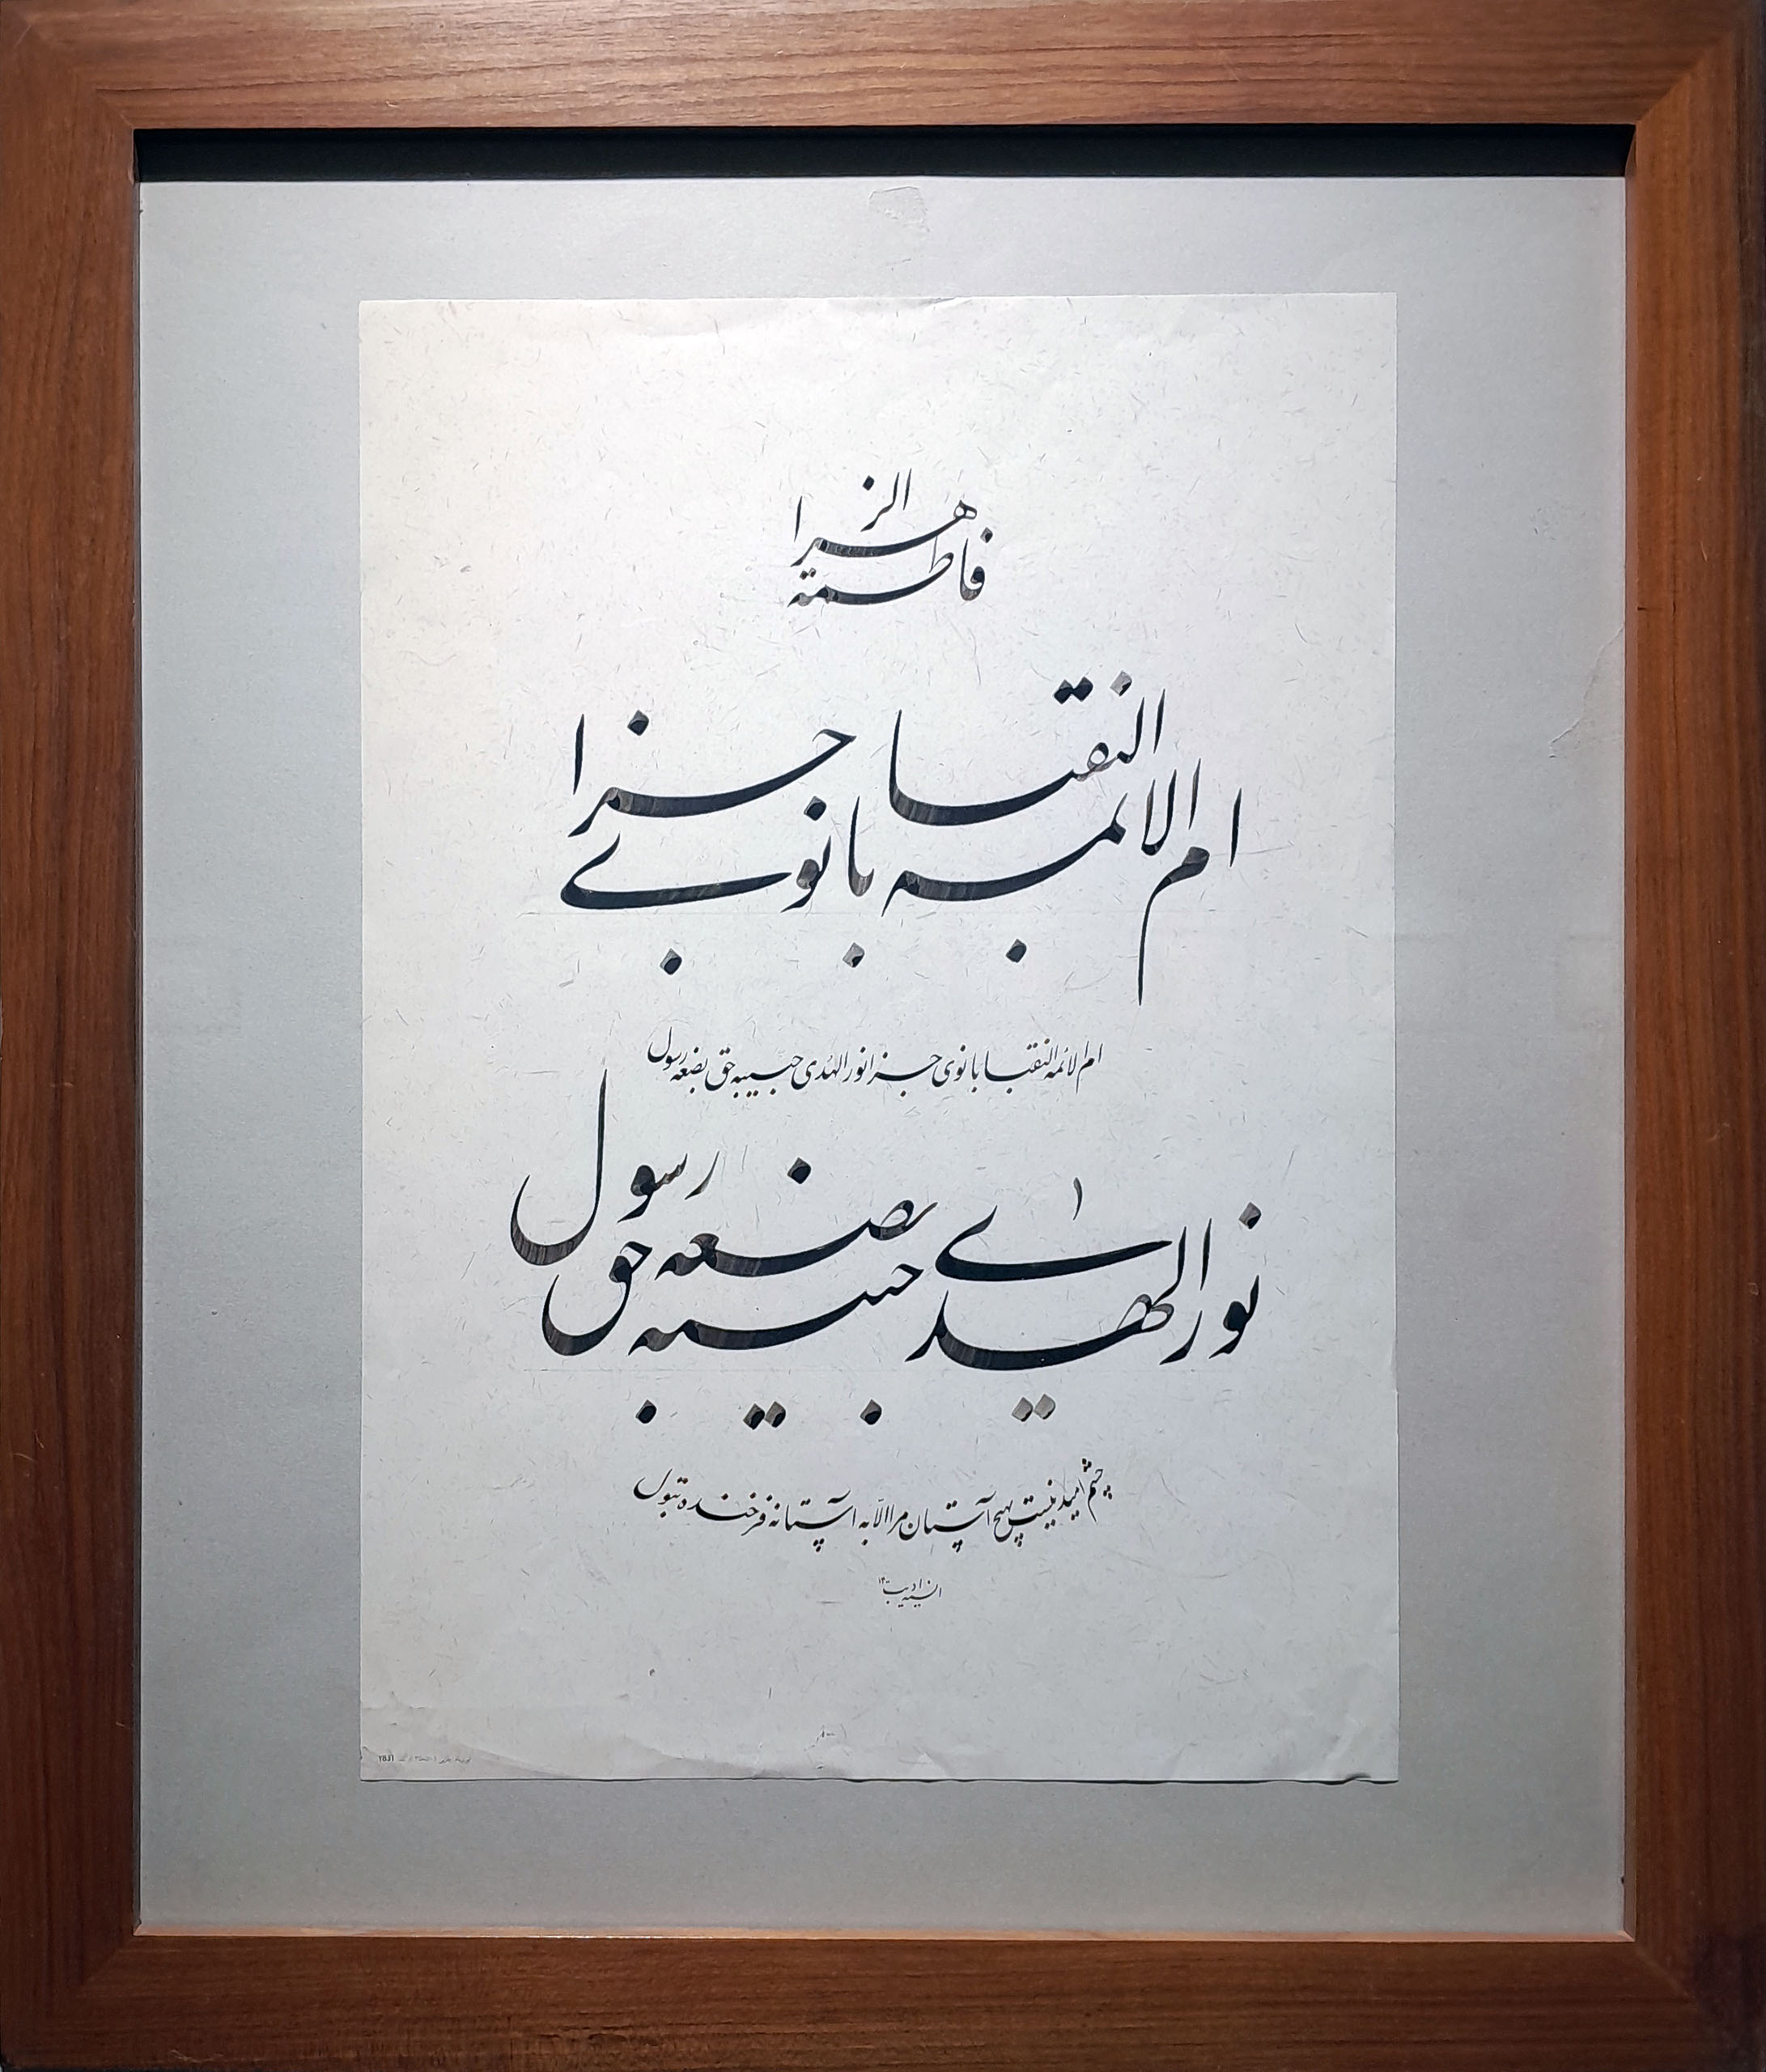 فاطمة الزهرا
ام الائمه النقبا بانوی جزا
ام الائمه النقبا بانوی جزا نور الهدی حبیبه حق بضعه رسول
نور الهدی حبیبه حق بضعه رسول
چشم امید نیست بهیچ آستان مرا الّا به آستانه فرخنده بتول
ادیب